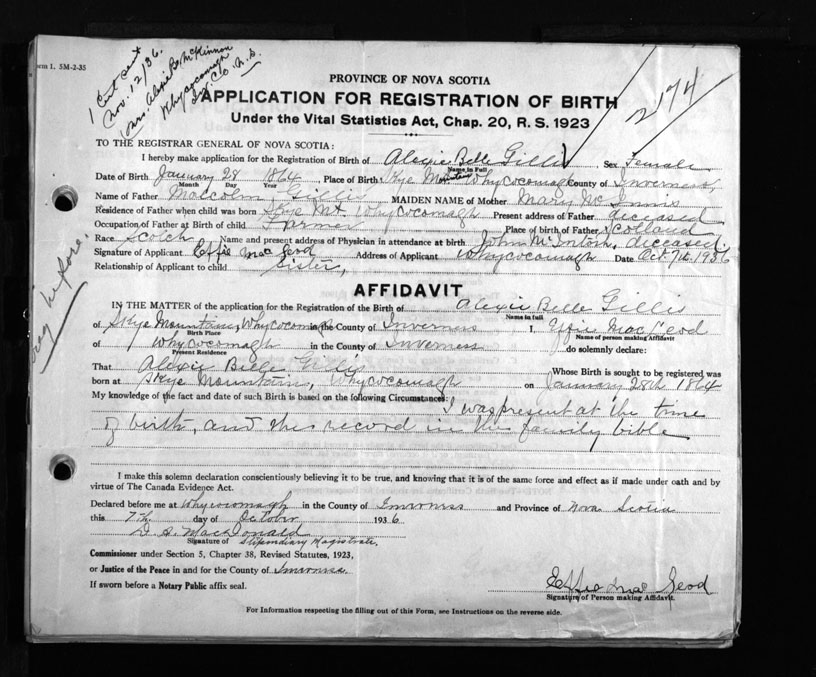 Form 1. 5M-2-35
1 Cert sent
Nov. 12/36.
Mrs. Alexie B. McKinnon
Whycocomagh
Inv. Co. N.S.
2174
PROVINCE OF NOVA SCOTIA
APPLICATION FOR REGISTRATION OF BIRTH
Under the Vital Statistics Act, Chap. 20, R. S. 1923
TO THE REGISTRAR GENERAL OF NOVA SCOTIA:
I hereby make application for the Registration of Birth of Alexie Belle Gillis Sex Female
Name in Full
Date of Birth January 28 1864 Place of Birth Skye Mountain Whycocomagh County of Inverness,
Month Day Year
Name of Father Malcolm Gillis MAIDEN NAME of Mother Mary McInnis
Residence of Father when child was born Skye Mt. Whycocomagh Present address of Father deceased
Occupation of Father at Birth of Child Farmer Place of birth of Father Scotland
Race Scotch Name and present address of Physician in attendance at birth John McIntosh, deceased.
Signature of Applicant Effie MacLeod Address of Applicant Whycocomagh Date Oct 7th, 1936
Relationship of Applicant to child Sister,
AFFIDAVIT
IN THE MATTER of the application for the Registration of the Birth of Alexie Belle Gillis
Name in full
of Skye Mountain, Whycocomagh in the County of Inverness I, Effie MacLeod
Birth Place Name of person making Affidavit
of Whycocomagh in the County of Inverness do solemnly declare:
Present Residence
That Alexie Belle Gillis Whose Birth is sought to be registered was
born at Skye Mountain, Whycocomagh on January 28th 1864
My knowledge of the fact and date of such Birth is based on the following Circumstances: I was present at the time
of birth, and the record in the family bible
I make this solemn declaration conscientiously believing it to be true, and knowing that it is of the same force and effect as if made under oath and by
virtue of The Canada Evidence Act.
Declared before me at Whycocomagh in the County of Inverness and Province of Nova Scotia
this 7th day of October 1936
D. A. MacDonald
Signature of Stipendiary Magistrate,
Commissioner under Section 5, Chapter 38, Revised Statutes, 1923,
or Justice of the Peace in and for the County of Inverness
If sworn before a Notary Public affix seal.
Effie MacLeod
Signature of Person making Affidavit.
For Information respecting the filling out of this Form, see Instructions on the reverse side.